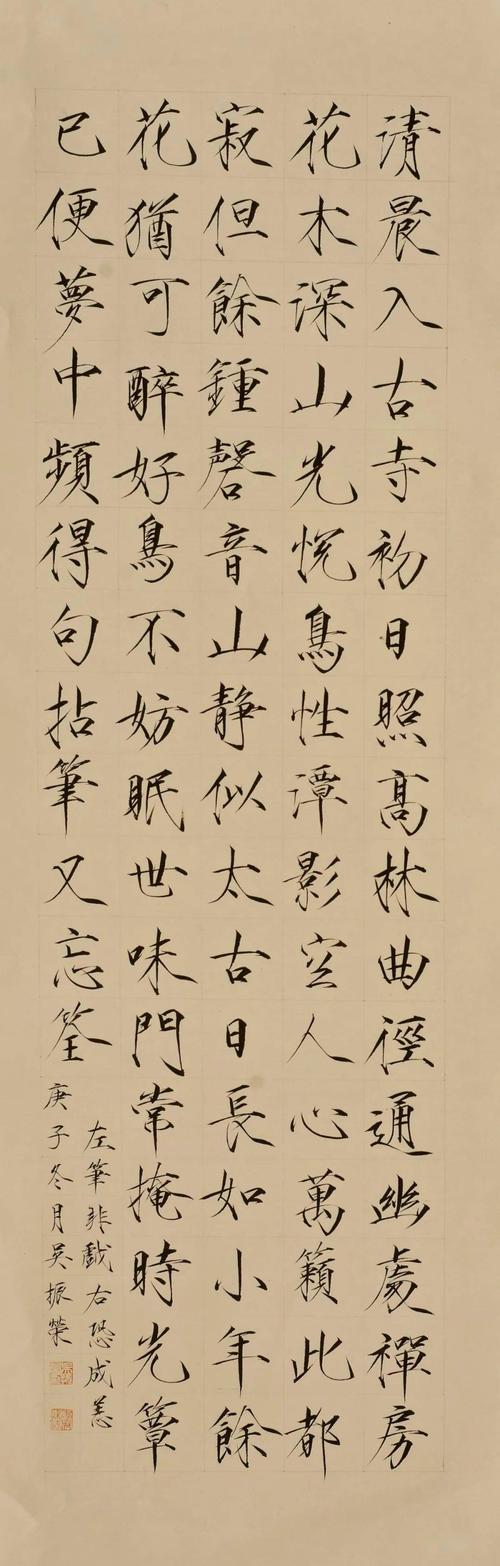 清晨入古寺初日照高林曲徑通幽處禪房
花木深山光悦鳥性潭影空人心萬籟此都
寂但餘鍾磬音山静似太古日長如小年餘
花猶可醉好鳥不妨眠世味門常掩時光簟
已便夢中頻得句拈筆又忘筌
左筆非戲右恐成恙
庚子冬月吴振榮